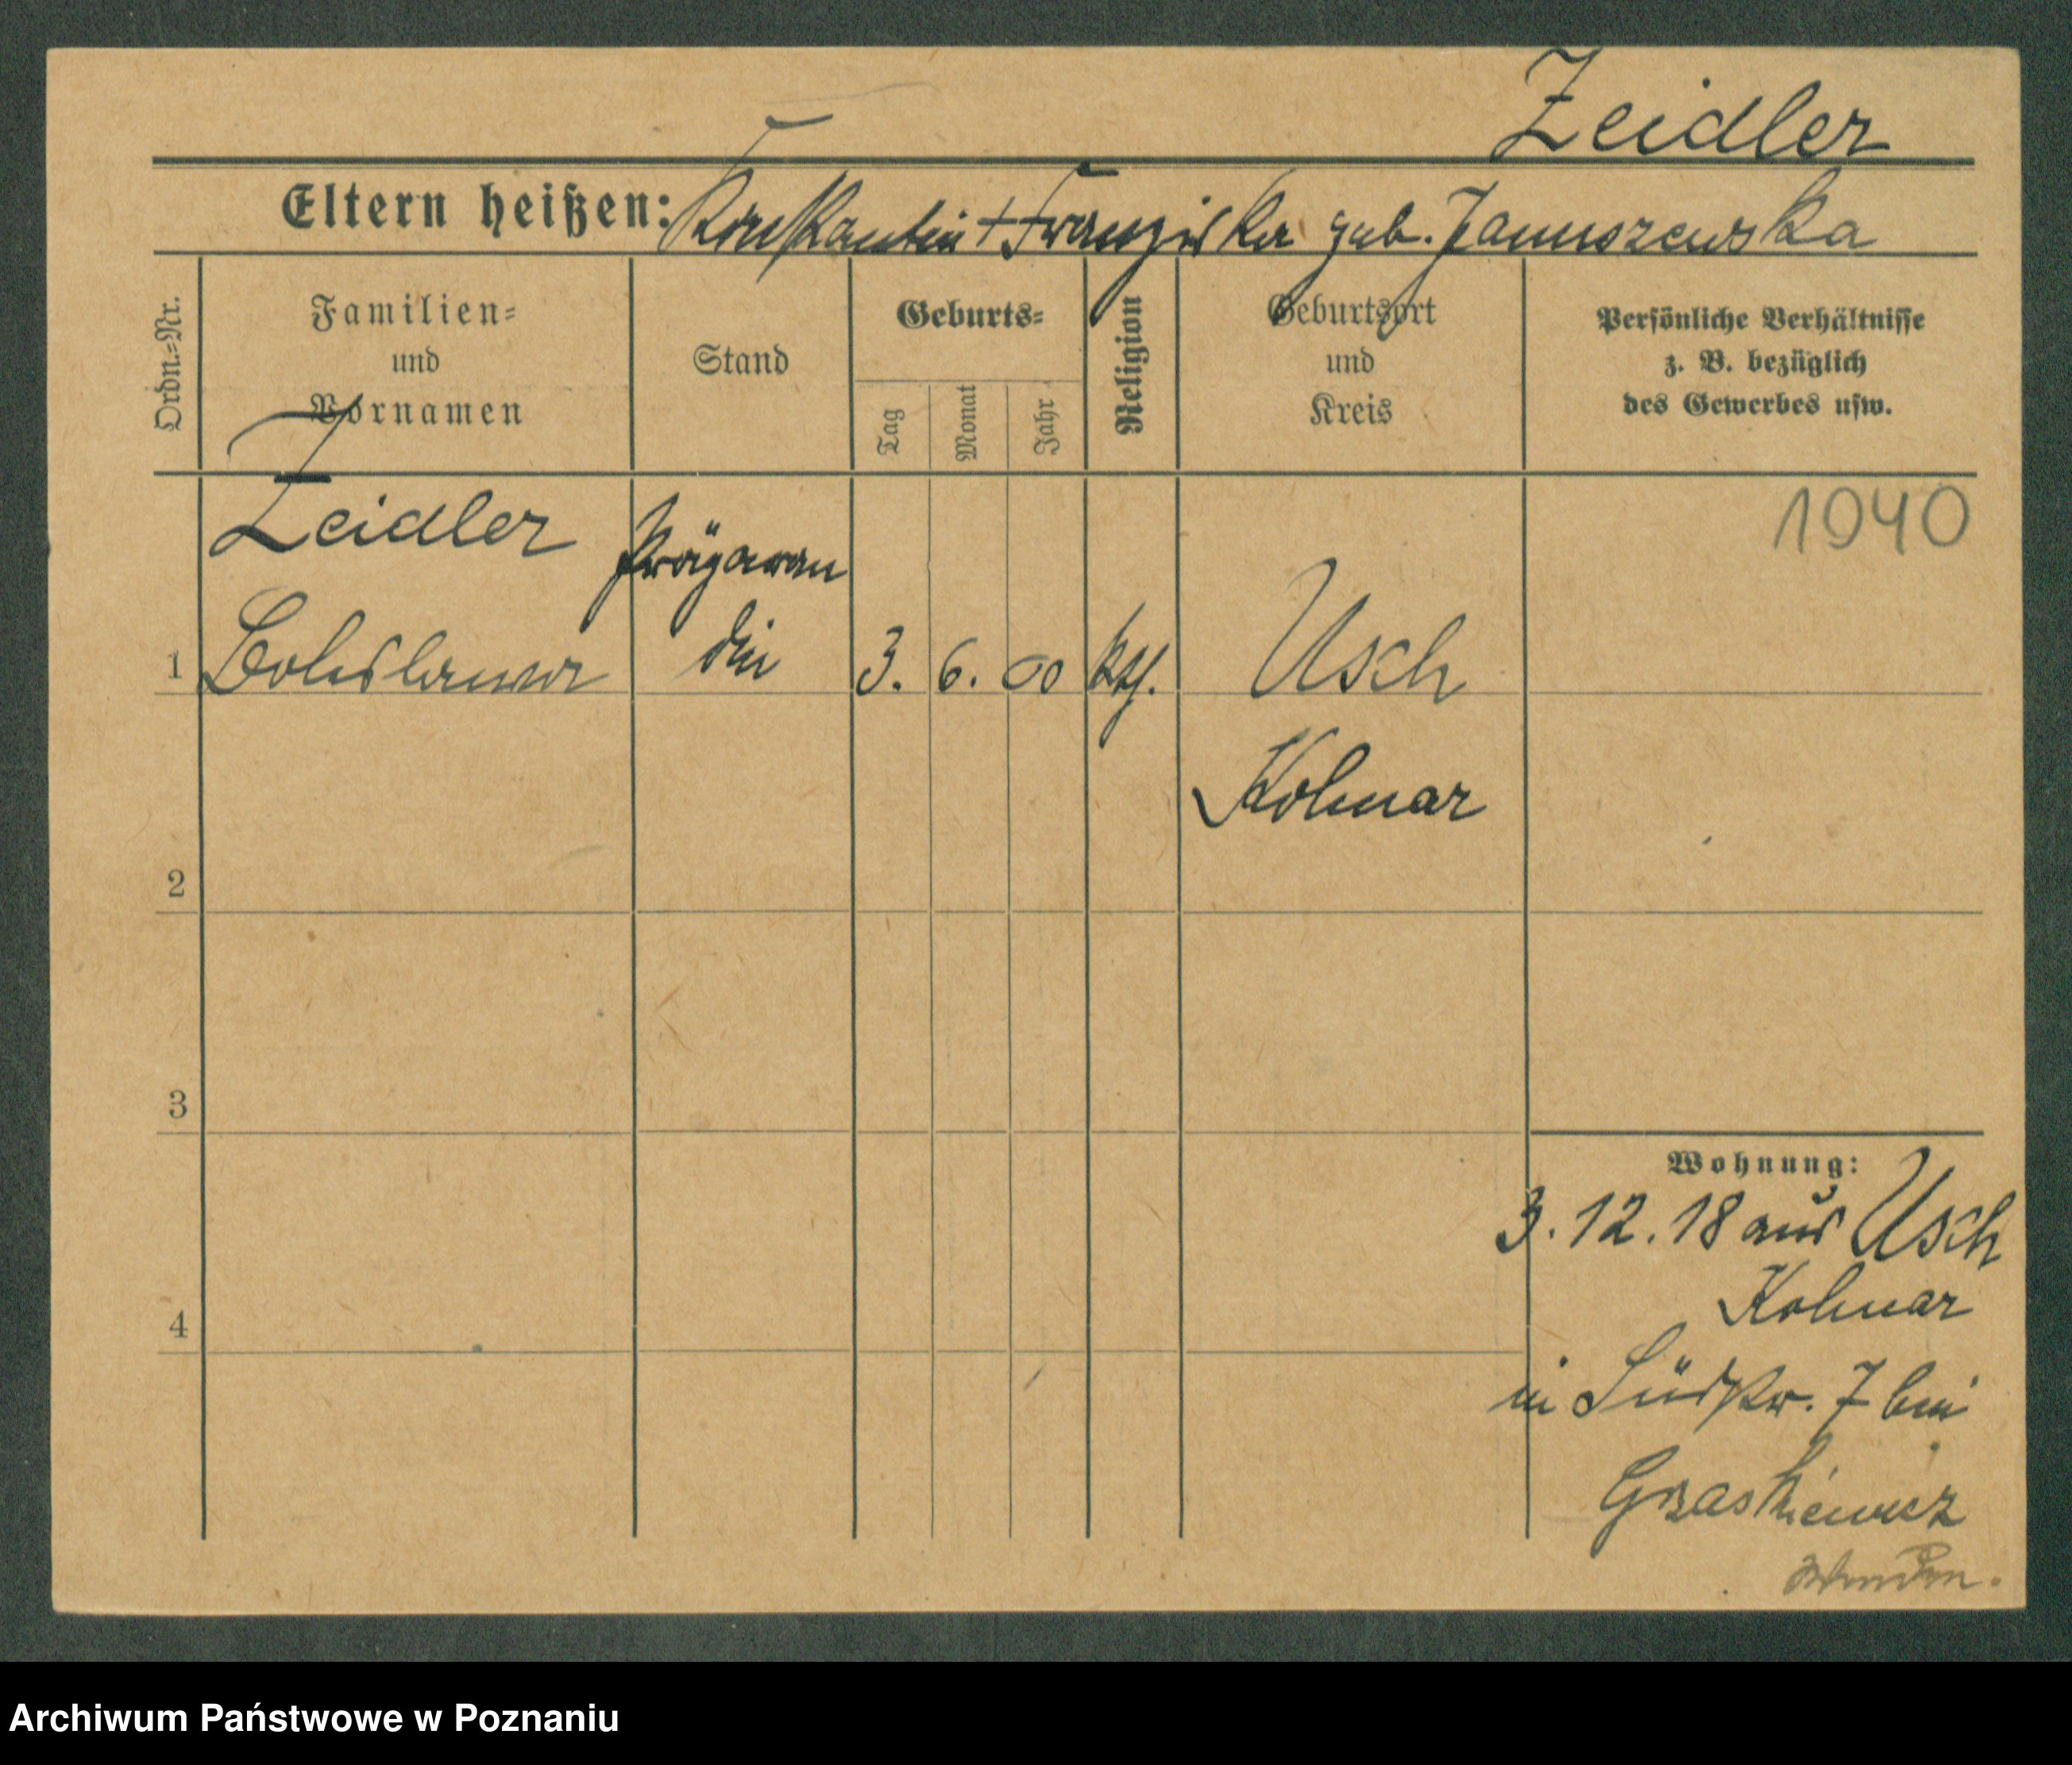 Zeidler
Eltern heißen: Konstantin + Franziska geb. Januszewska
Ordn.=Nr.
Familien=
und
Vornamen
Stand
Geburts=
Tag
Monat
Jahr
Religion
Geburtsort
und
Kreis
Persönliche Verhältnisse
z. B. bezüglich
des Gewerbes usw.
1940
Zeidler
1 Boleslawa 3. 6. 00 kth. Usch
Kolmar
2
3
4
Wohnung:
3.12.18 aus Usch
Kolmar
in Südstr. 7 bei
Graskiewicz
Archiwum Państwowe w Poznaniu